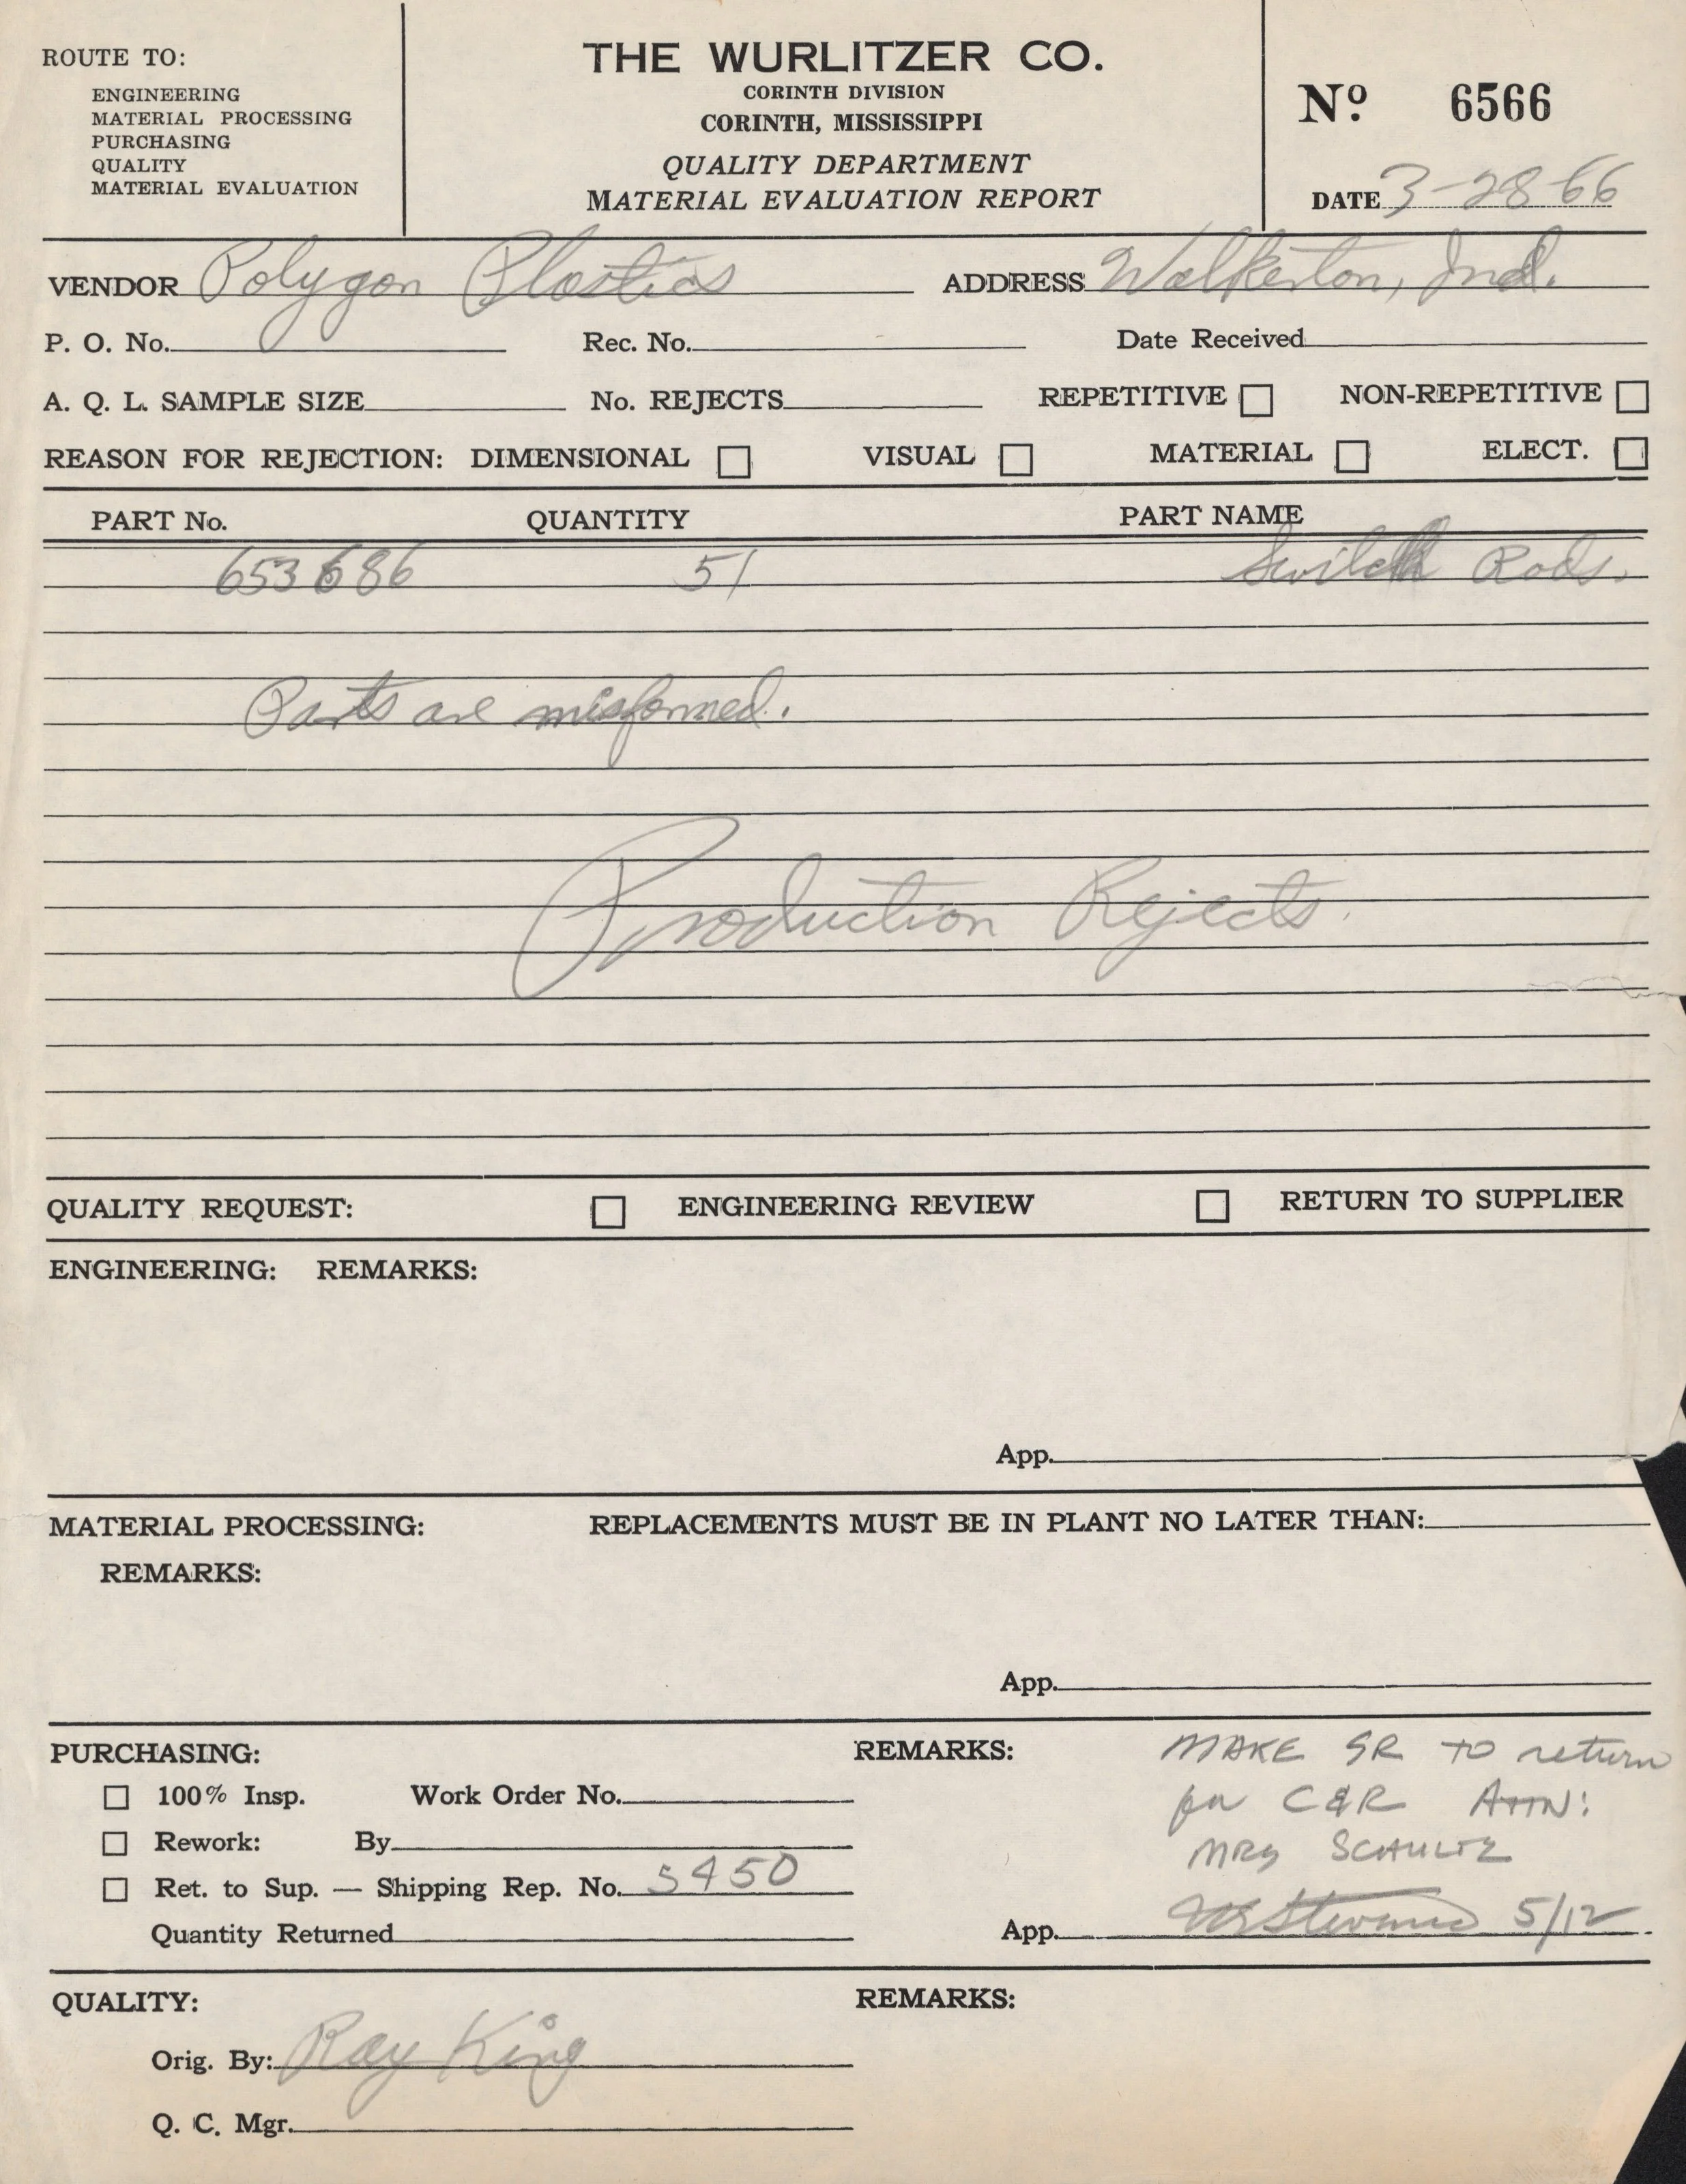 ROUTE TO:
ENGINEERING
MATERIAL PROCESSING
PURCHASING
QUALITY
MATERIAL EVALUATION
THE WURLITZER CO.
CORINTH DIVISION
CORINTH, MISSISSIPPI
QUALITY DEPARTMENT
MATERIAL EVALUATION REPORT
Nº 6566
DATE 3-28-66
VENDOR Polygon Plastics ADDRESS Walkerton, Ind.
P. O. No. Rec. No. Date Received
A. Q. L. SAMPLE SIZE No. REJECTS REPETITIVE NON-REPETITIVE
REASON FOR REJECTION: DIMENSIONAL VISUAL MATERIAL ELECT.
PART No. QUANTITY PART NAME
653686 51 Switch Rods.
Parts are misformed.
Production Rejects.
QUALITY REQUEST: ENGINEERING REVIEW RETURN TO SUPPLIER
ENGINEERING: REMARKS:
App.
MATERIAL PROCESSING: REPLACEMENTS MUST BE IN PLANT NO LATER THAN:
REMARKS:
App.
PURCHASING: REMARKS: MAKE SR TO return
100% Insp. Work Order No. for C&R ATTN:
Rework: By MRS SCHULTZ
Ret. to Sup. — Shipping Rep. No. 5450
Quantity Returned App. Stevens 5/12
QUALITY: REMARKS:
Orig. By: Ray King
Q. C. Mgr.